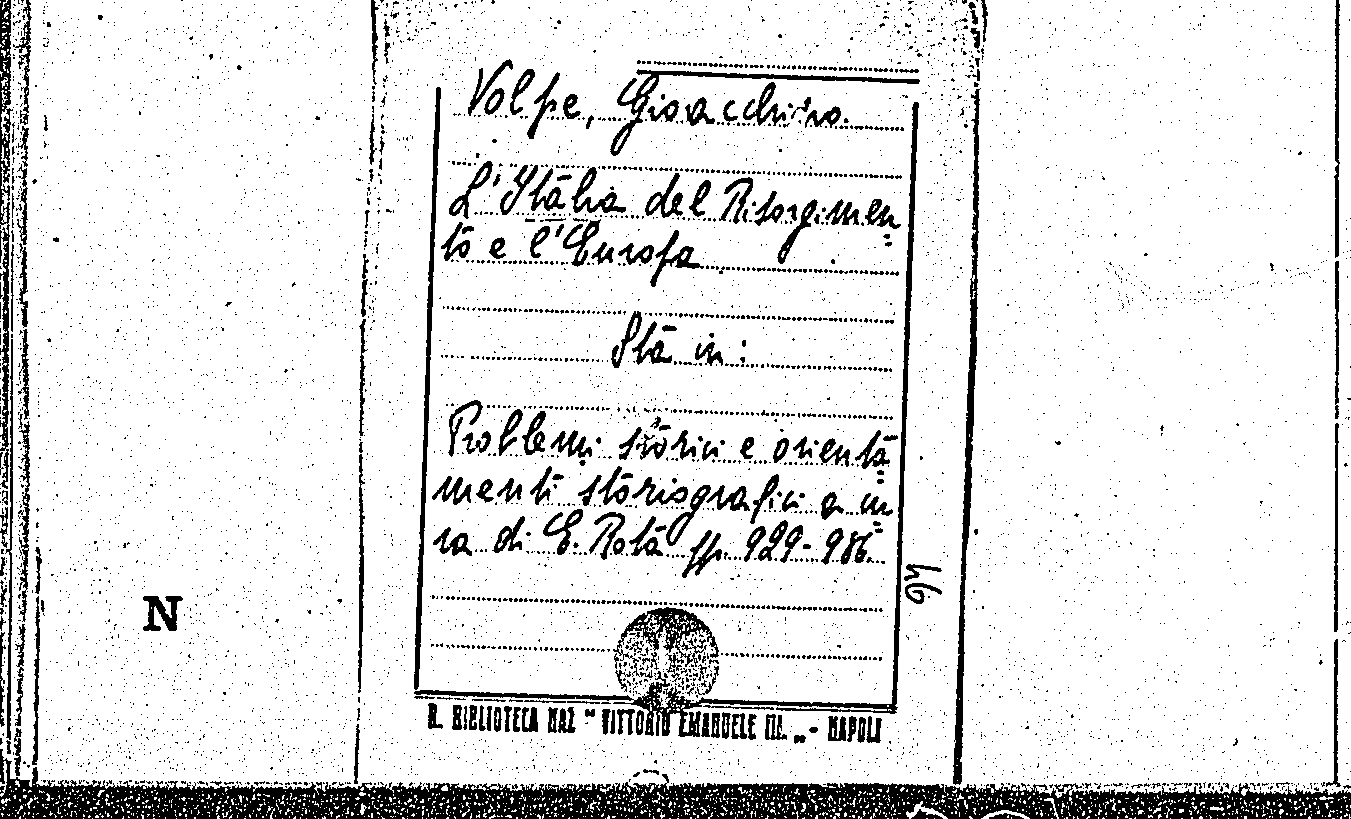 Volpe, Gioacchino.
L'Italia del Risorgimen
to e l'Europa
Sta in:
Problemi storici e orienta
menti storiografici a cu
ra di E. Rota pp. 929-986.
N
R. BIBLIOTECA NAZ " VITTORIO EMANUELE III. „ - NAPOLI